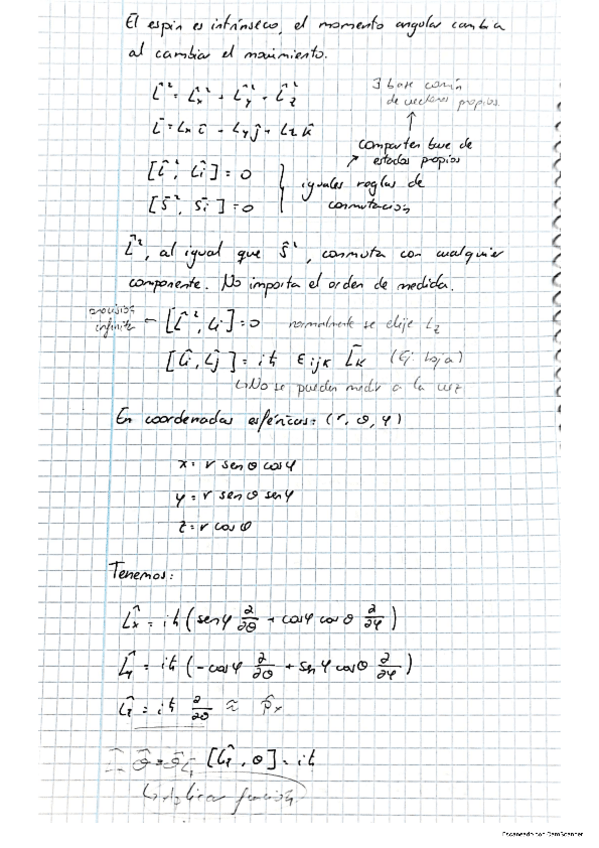 El espín es intrínseco, el momento angular cambia
al cambiar el movimiento.
L̂² = L̂x² + L̂y² + L̂z²
∃ base común
de vectores propios
L̄ = Lx î + Ly ĵ + Lz k̂
comparten base de
estados propios
[L̂², L̂i] = 0
[Ŝ², Ŝi] = 0
iguales reglas de
conmutación
L̂², al igual que Ŝ², conmuta con cualquier
componente. No importa el orden de medida.
precisión
infinita ← [L̂², Li] = 0 normalmente se elije Lz
[L̂i, L̂j] = iħ εijk L̂k (Ej. hoja)
↳ No se pueden medir a la vez
En coordenadas esféricas: (r, θ, φ)
x = r senθ cosφ
y = r senθ senφ
z = r cosθ
Tenemos:
L̂x = iħ (senφ ∂/∂θ + cosφ cosθ ∂/∂φ)
L̂y = iħ (-cosφ ∂/∂θ + senφ cosθ ∂/∂φ)
L̂z = iħ ∂/∂θ ≈ p̂x
[L̂z, θ] = iħ
↳ Aplicar función
Escaneado con CamScanner